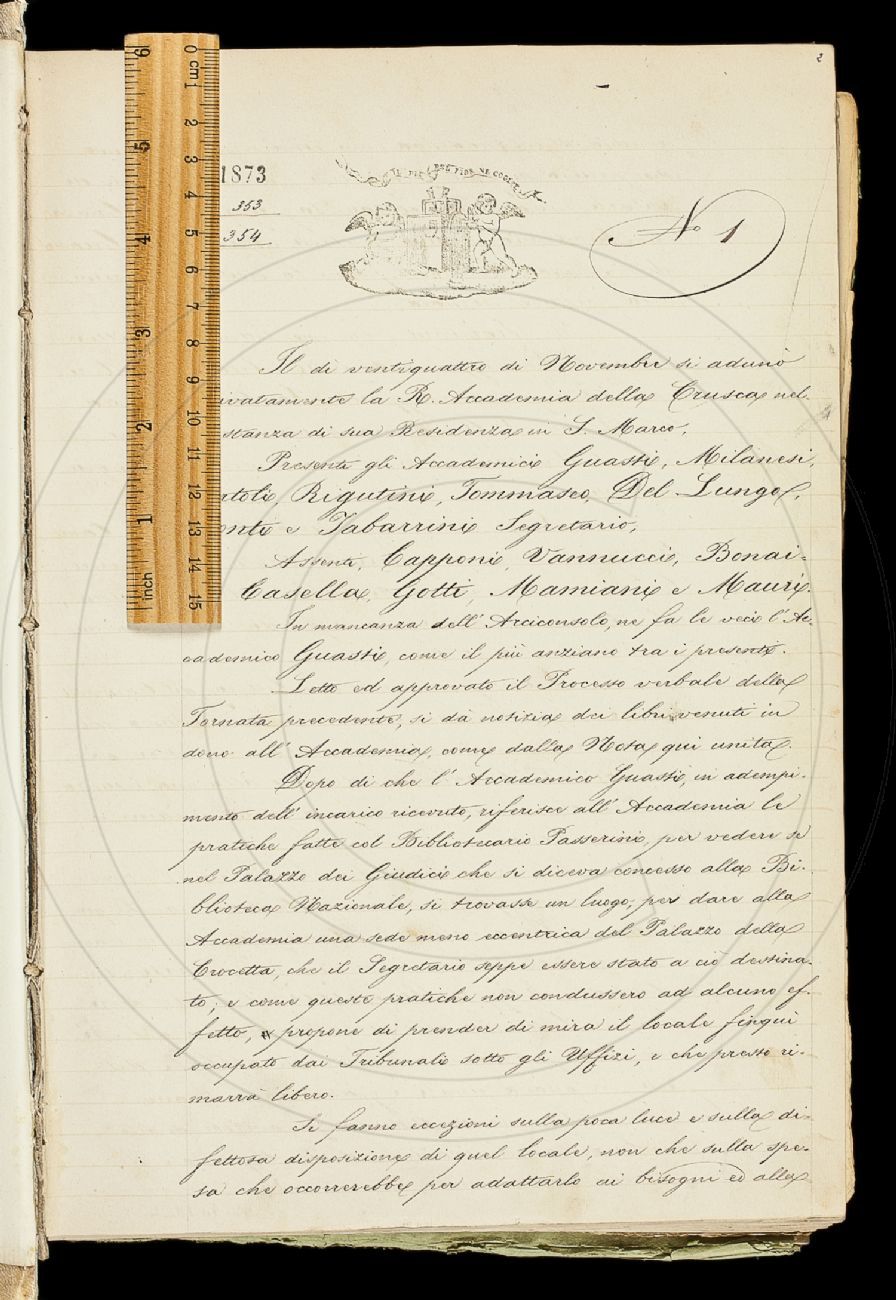 2
1873
353
354
IL PIÙ BEL FIOR NE COGLIE
No 1
Il dì ventiquattro di Novembre si adunò
ivatamente la R. Accademia della Crusca nel-
stanza di sua Residenza in S. Marco.
Presenti gli Accademici Guasti, Milanesi,
rtoli, Rigutini, Tommaseo, Del Lungo,
onti e Tabarrini Segretario,
Assenti, Capponi, Vannucci, Bonai-
Casella, Gotti, Mamiani e Mauri.
In mancanza dell' Arciconsolo, ne fa le veci l' Ac-
cademico Guasti, come il più anziano tra i presenti.
Letto ed approvato il Processo verbale della
Tornata precedente, si dà notizia dei libri venuti in
dono all' Accademia, come dalla Nota qui unita.
Dopo di che l' Accademico Guasti, in adempi-
mento dell' incarico ricevuto, riferisce all' Accademia le
pratiche fatte col Bibliotecario Passerini, per vedere se
nel Palazzo dei Giudici che si diceva concesso alla Bi-
blioteca Nazionale, si trovasse un luogo, per dare alla
Accademia una sede meno eccentrica del Palazzo della
Crocetta, che il Segretario seppe essere stato a ciò destina-
to; e come queste pratiche non condussero ad alcuno ef-
fetto, propone di prender di mira il locale finqui
occupato dai Tribunali sotto gli Uffizi, e che presto ri-
marrà libero.
Si fanno eccezioni sulla poca luce e sulla di-
fettosa disposizione di quel locale, non che sulla spe-
sa che occorrerebbe per adattarlo ai bisogni ed alla
0 cm 1 2 3 4 5 6 7 8 9 10 11 12 13 14 15
6 5 4 3 2 1 inch